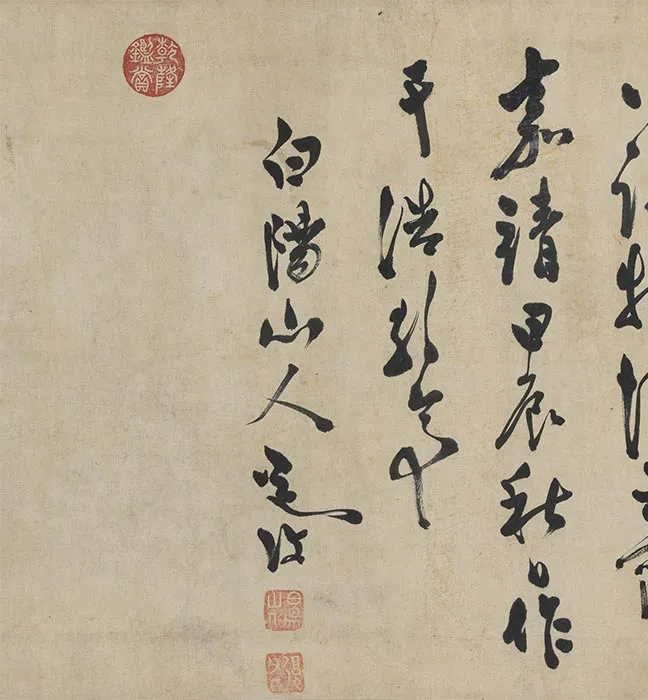 嘉靖甲辰秋日作
于浩歌亭
白陽山人道復
白陽山人
乾隆鑑賞